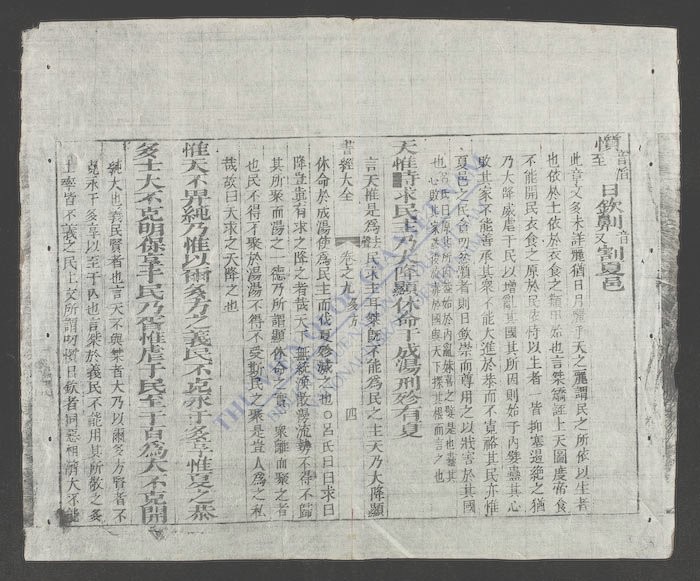 懫音至日欽劓音乂割夏邑
此章文多未詳麗猶日月麗乎天之麗謂民之所依以生者
也依於土依於衣食之類甲始也言桀矯誣上天圖度帝命
不能開民衣食之原於民依恃以生者一皆抑塞遏絕之猶
乃大降威虐于民以增亂其國其所因則始于內嬖蠱其心
敗其家不能善承其眾不能大進於恭而大寬裕其民亦惟
夏邑之民貪叨忿懫者則日欽崇而尊用之以戕害於其國
也
天惟時求民主乃大降顯休命于成湯刑殄有夏
言天惟是為民求主耳桀既不能為民之主天乃大降顯
書經大全 卷之九 多方 四
休命於成湯使為民主而伐夏殄滅之也○呂氏曰曰求曰
降豈真有求之降之者哉天下無統渙散漫流勢不得不歸
其所聚而湯之一德乃所謂顯休命之實一眾離而聚之者
也民不得不聚於湯湯不得不受斯民之聚是豈人為之私
哉故曰天求之天降之也
惟天不畀純乃惟以爾多方之義民不克永于多享惟夏之恭
多士大不克明保享于民乃胥惟虐于民至于百為大不克開
純大也義民賢者也言天不與桀者大乃以爾多方賢者不
克永于多享以至于亡也言桀於義民不能用其所敬之多
士率皆不義之民上文所謂叨懫日欽者同惡相濟大不能
THƯ VIỆN QUỐC GIA VIỆT NAM
NATIONAL LIBRARY OF VIETNAM